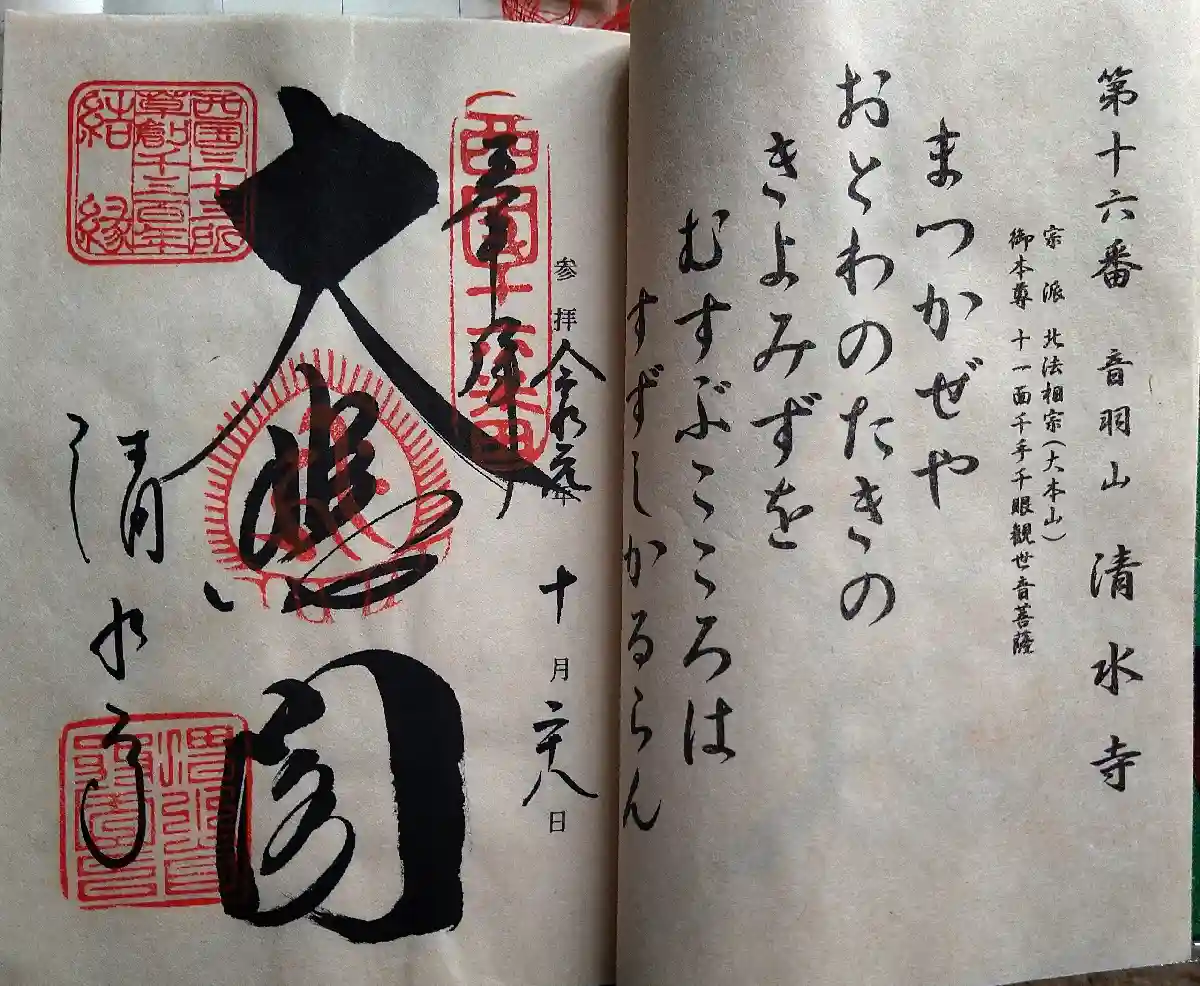 第十六番 音羽山 清水寺
宗派 北法相宗(大本山)
御本尊 十一面千手千眼観世音菩薩
まつかぜや
おとわのたきの
きよみずを
むすぶこころは
すずしかるらん
参拝 令和元年 十月二十八日
奉拝
西国十六番
大悲閣
清水寺
西国三十三所
草創千三百年
結縁